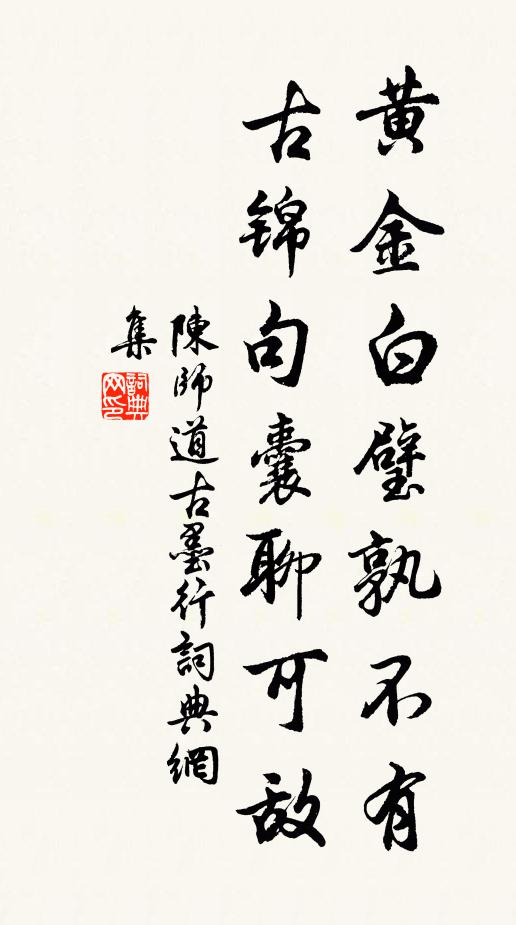 黄金白璧孰不有
古锦句囊聊可敌
陳師道古墨行詞典網
集
詞典
网印